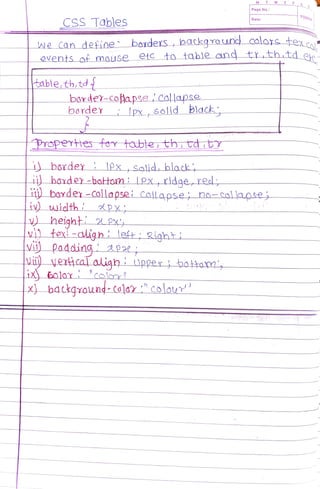 M T W T F S S
Page No.:
Date:
YOUVA
CSS Tables
We can define borders, background colors
events of mouse etc to table and tr, th, td etc
table, th, td {
border-collapse : collapse
border : 1px, solid black;
}
Properties for table, th, td, tr
i) border : 1px, solid, black;
ii) border-bottom : 1px, ridge, red;
iii) border-collapse: collapse; no-collapse;
iv) width : 2px;
v) height : 2px;
vi) text-align : left; Right;
vii) Padding : 2px;
viii) vertical align : Upper; bottom;
ix) Color : "color"
x) background-color : "colour"